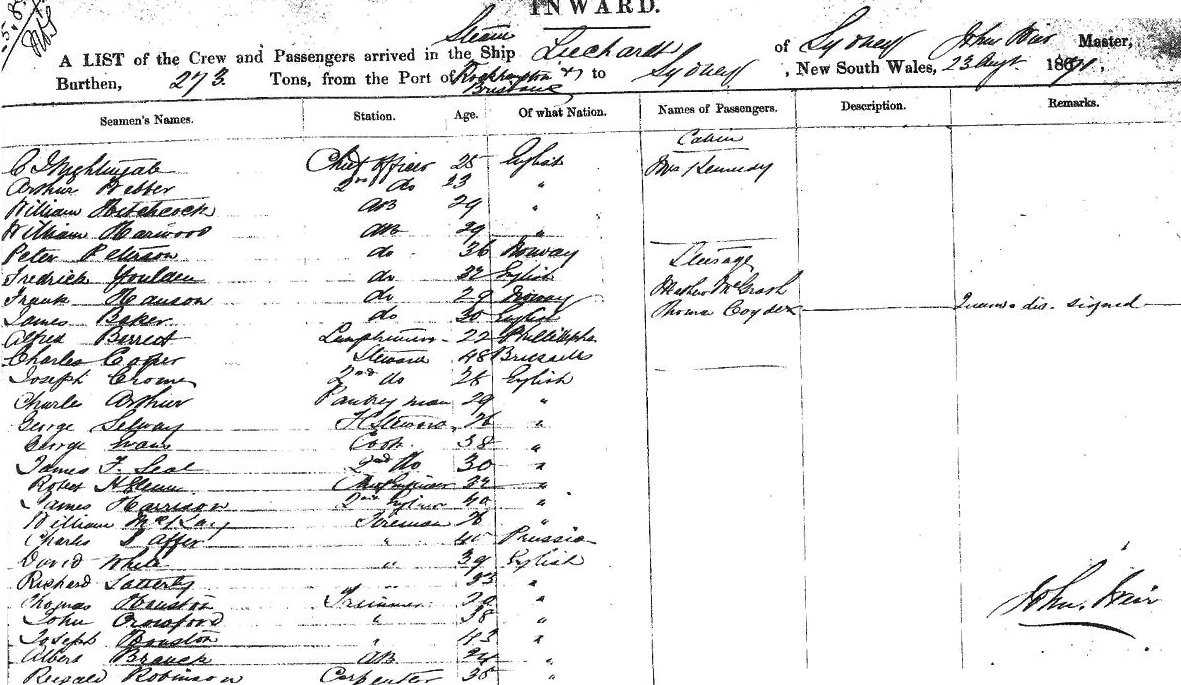 INWARD.
Steam
A LIST of the Crew and Passengers arrived in the Ship Leichardt of Sydney John Weir Master,
Burthen, 273 Tons, from the Port of Rockhampton & to Sydney, New South Wales, 23 Augt 1871.
Brisbane
Seamen's Names. Station. Age. Of what Nation. Names of Passengers. Description. Remarks.
Cabin
C Nightingale Chief Officer 25 English Mrs Kennedy
Arthur Webber 2nd do 23 "
William Hitchcock AB 29 "
William Harwood AB 29 "
Peter Peterson do 36 Norway
Steerage
Fredrick Youlden do 32 English
Mathew McGrath
Frank Hanson do 29 Norway
James Baker do 30 English Thomas dis. signed
Alfred 22
Charles Cooper Steward 48 Brussells
Joseph Crome 2nd do 28 English
Charles Arthur Pantry man 29 "
George Selway Steward 26 "
George Evans Cook 38 "
James F. Seal 2nd do 30 "
Robert 32 "
James Harrison 2nd 40 "
William McKay Fireman 26 "
Charles " 40 Prussia
David White " 39 English
Richard " 23 "
Thomas Houston Trimmer "
John Crawford " 38 "
Joseph Houston " 43 "
John Weir
Albert AB 24 "
Robinson Carpenter 35 "